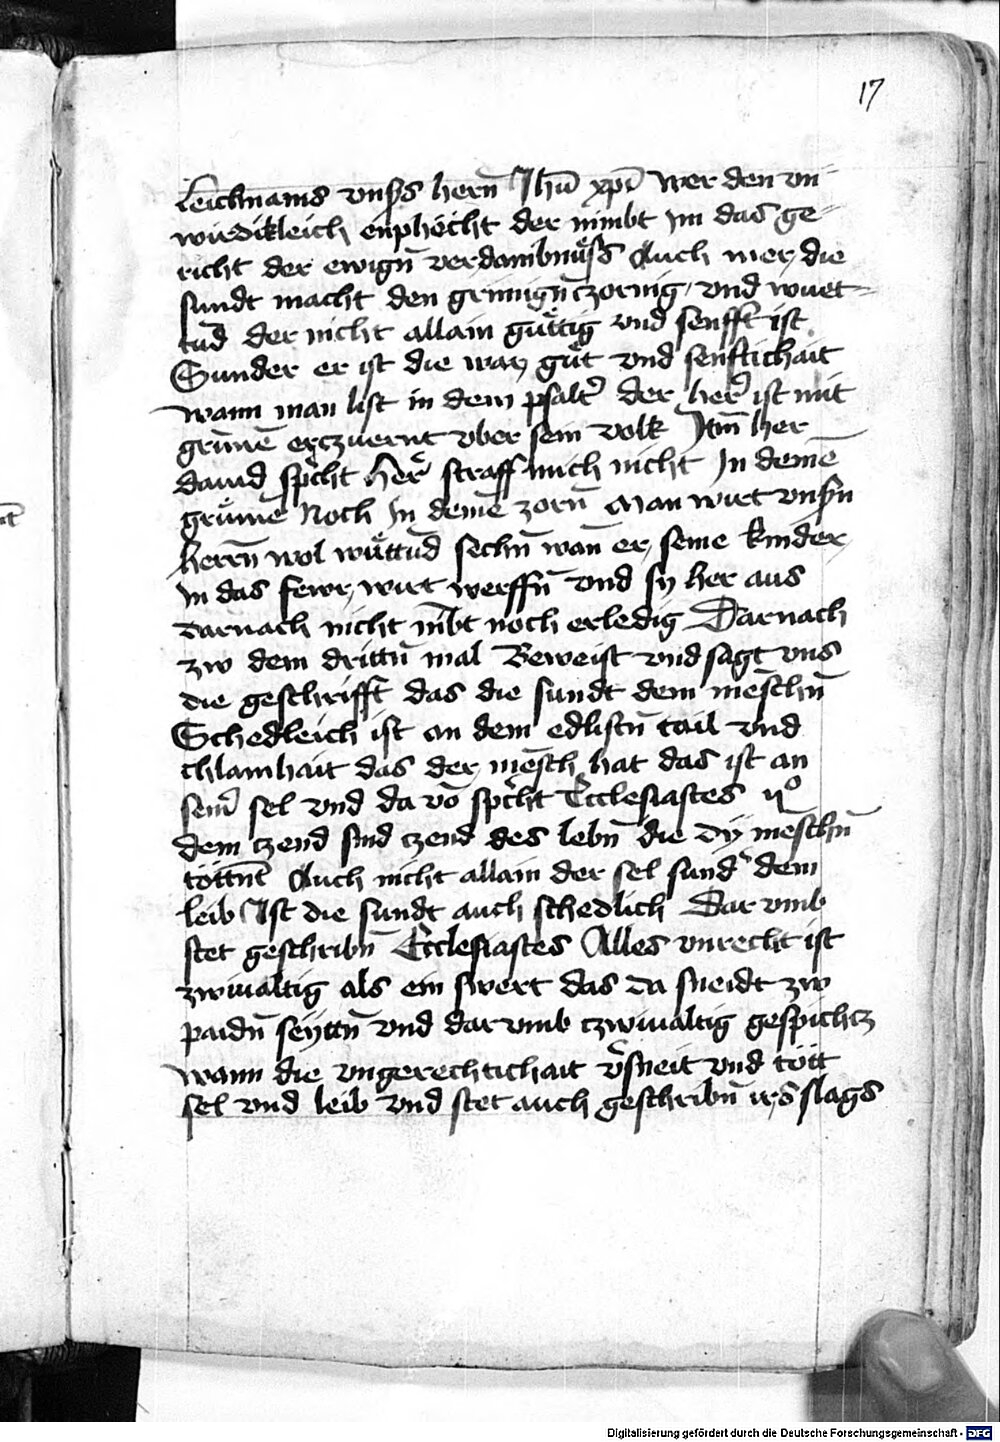 17
Leichnams vnsers hern Jhū xpī wer den vn-
wirdikleich enphecht der nimbt im das ge-
richt der ewign̄ verdambnüss Auch wer die
sundt macht den grimign̄ czornig vnd wuet-
tūd der nicht allain gūttig vnd senfft ist
Sunder er ist die war gūt vnd senftichait
wann man list in dem psalt̉ der her̉ ist mit
grimē erczuernt vber sein volk Itm̄ her
dauid spͥcht Her straff mich nicht In deinē
grūmē Noch In deinē zorn̄ Man wirt vnsn̄
herrn̄ wol wūttūd sechn̄ wan̄ er seine kinder
in das fewr wirt werffn̄ vnd sy her aus
darnach nicht nībt noch erledig Darnach
zw dem drittn̄ mal Beweist vnd sagt vns
die geschrifft das die sundt dem mēschn̄
Schedleich ist an dem edlistn̄ tail vnd
chlainhait das der mēsch hat das ist an
sein̉ sel vnd da vō spͥcht Ecclesiastes ijº
dem czend sind czend des lebn̄ die dy mēschn̄
töttnt Auch nicht allain der sel sund̉ dem
leib Ist die sundt auch schedlich Dar vmb
stet geschribn̄ Ecclesiastes Alles vnrecht ist
zwiualtig als ein swert das da sneidt zw
paidn̄ seyttn̄ vnd dar vmb czwiualtig gespichcz
wann die vngerechtichait v̉sneit vnd tött
sel vnd leib vnd stet auch geschribn̄ irs slags
Digitalisierung gefördert durch die Deutsche Forschungsgemeinschaft - DFG